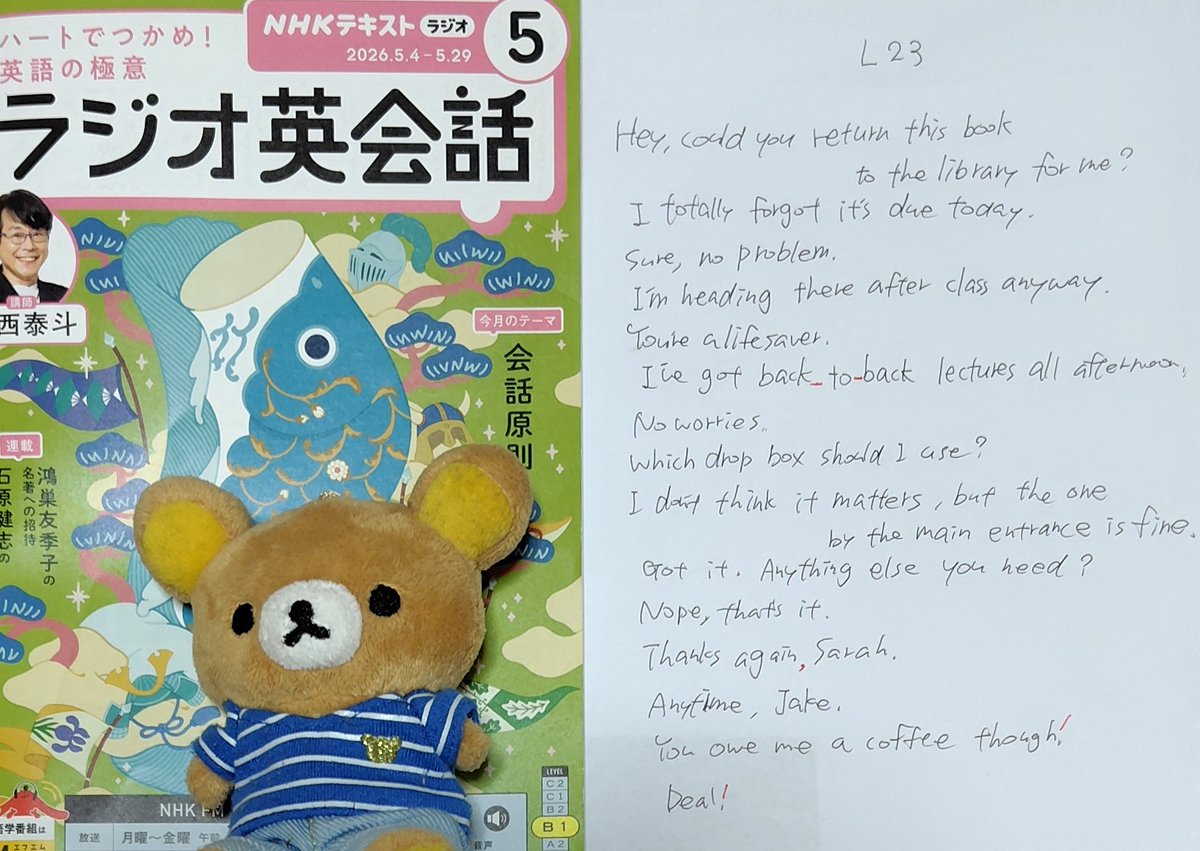 ハートでつかめ!
英語の極意
NHKテキスト ラジオ
2026.5.4-5.29
5
ラジオ英会話
講師
西泰斗
今月のテーマ
会話原則
連載
鴻巣友季子の
名著への招待
石原健志の
NHK FM
放送 月曜~金曜 午前
音声
語学番組は
LEVEL
C2
C1
B2
B1
A2
L23
Hey, could you return this book
to the library for me?
I totally forgot it's due today.
Sure, no problem.
I'm heading there after class anyway.
You're a lifesaver.
I've got back-to-back lectures all afternoon.
No worries.
Which drop box should I use?
I don't think it matters, but the one
by the main entrance is fine.
Got it. Anything else you need?
Nope, that's it.
Thanks again, Sarah.
Anytime, Jake.
You owe me a coffee though!
Deal!